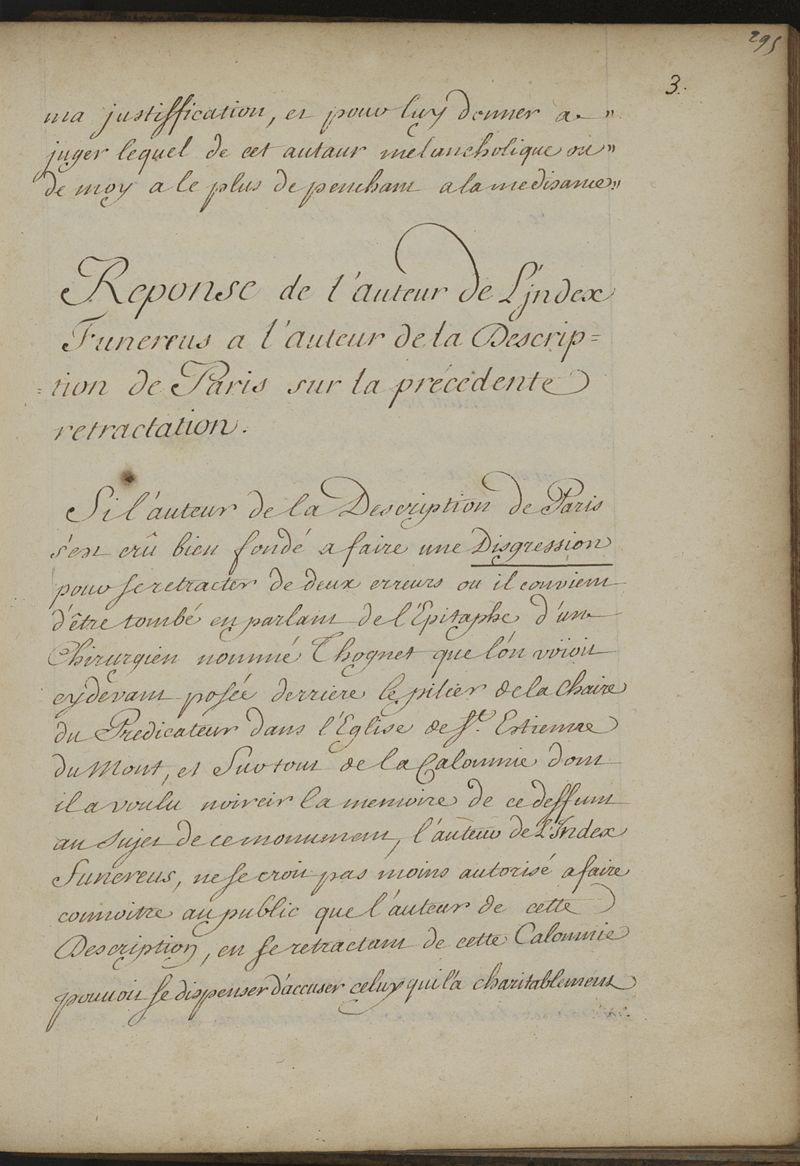 295
3.
ma justiffication, et pour luy donner a "
juger lequel de cet autaur melancholique ou "
de moy a le plus de penchant a la medisance "
Reponse de l'auteur de L'jndex
Funereus a l'auteur de la Descrip=
=tion de Paris sur la précédente
retractation.
Si l'auteur de la Description de Paris
s'est crû bien fondé a faire une Disgression
pour se retracter de deux erreurs ou il convient
d'être tombé en parlant de l'Epitaphe d'un
Chirurgien nommé Thognet que l'on voioit
cydevant posée derriere le pilier de la Chaire
du Predicateur dans l'Eglise de St. Estienne
du Mont, et Sur tout de la Calomnie dont
il a voulu noircir la memoire de ce deffunt
au sujet de ce monument, l'auteur de L'Index
Funereus, ne se croit pas moins autorisé a faire
connoitre au public que l'auteur de cette
Description, en se retractant de cette Calomnie
pouvoit se dispenser d'accuser celuy qui l'a charitablement